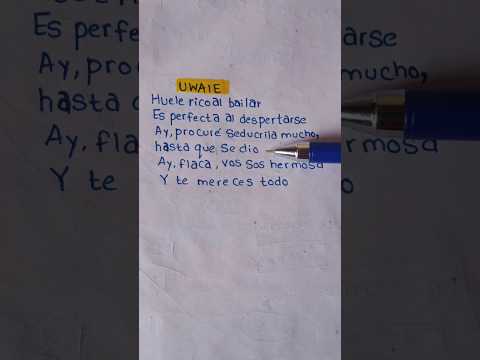 UWAIE
Huele ricoal bailar
Es perfecta al despertarse
Ay, procuré seducrila mucho,
hasta que se dio
Ay, flaca, vos sos hermosa
Y te mereces todo